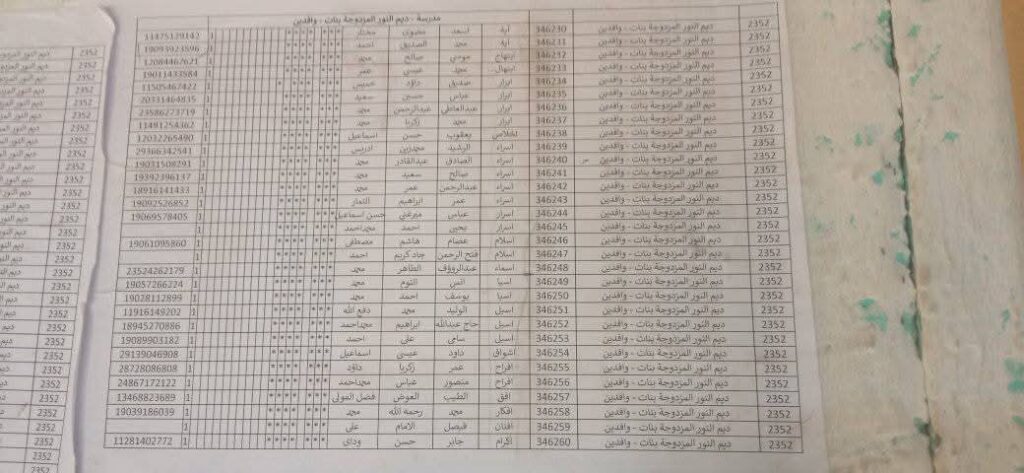 مدرسة - ديم النور المزدوجة بنات - وافدين
2352 ديم النور المزدوجة بنات - وافدين 346230 اية اسعد مضوى مختار *** **** 1 11475129142
2352 ديم النور المزدوجة بنات - وافدين 346231 اية محمد الصديق احمد *** **** 1 19093923896
2352 ديم النور المزدوجة بنات - وافدين 346232 ابتهاج موسي صالح محمد *** **** 1 12084467621
2352 ديم النور المزدوجة بنات - وافدين 346233 ابتهال محمد عيسي عمر *** **** 1 19011433584
2352 ديم النور المزدوجة بنات - وافدين 346234 ابرار صديق داؤد خميس *** **** 1 11505467422
2352 ديم النور المزدوجة بنات - وافدين 346235 ابرار عباس حسين سعيد *** **** 1 20331464835
2352 ديم النور المزدوجة بنات - وافدين 346236 ابرار عبدالعاطي عبدالرحمن محمد *** **** 1 23586273719
2352 ديم النور المزدوجة بنات - وافدين 346237 ابرار محمد زكريا محمد *** **** 1 11491254362
2352 ديم النور المزدوجة بنات - وافدين 346238 اخلاص يعقوب حسن اسماعيل *** **** 1 12032265490
2352 ديم النور المزدوجة بنات - وافدين 346239 اسراء الرشيد محمدزين ادريس *** **** 1 29366342541
2352 ديم النور المزدوجة بنات - وافدين 346240 اسراء الصادق عبدالقادر محمد *** **** 1 19031508291
2352 ديم النور المزدوجة بنات - وافدين 346241 اسراء صالح سعيد محمد *** **** 1 19392396137
2352 ديم النور المزدوجة بنات - وافدين 346242 اسراء عبدالرحمن عمر محمد *** **** 1 18916141433
2352 ديم النور المزدوجة بنات - وافدين 346243 اسراء عمر ابراهيم النمار *** **** 1 19092526852
2352 ديم النور المزدوجة بنات - وافدين 346244 اسرار عباس ميرغني حسن اسماعيل *** **** 1 19069578405
2352 ديم النور المزدوجة بنات - وافدين 346245 اسرار يحيى احمد محمداحمد *** **** 1
2352 ديم النور المزدوجة بنات - وافدين 346246 اسلام عصام هاشم مصطفى *** **** 1 19061095860
2352 ديم النور المزدوجة بنات - وافدين 346247 اسلام فتح الرحمن جاد كريم احمد *** **** 1
2352 ديم النور المزدوجة بنات - وافدين 346248 اسماء عبدالرؤوف الطاهر محمد *** **** 1 23524262179
2352 ديم النور المزدوجة بنات - وافدين 346249 اسيا انس التوم محمد *** **** 1 19057266224
2352 ديم النور المزدوجة بنات - وافدين 346250 اسيا يوسف احمد محمد *** **** 1 19028112899
2352 ديم النور المزدوجة بنات - وافدين 346251 اسيل الوليد محمد دفع الله *** **** 1 11916149202
2352 ديم النور المزدوجة بنات - وافدين 346252 اسيل حاج عبدالله ابراهيم محمداحمد *** **** 1 18945270886
2352 ديم النور المزدوجة بنات - وافدين 346253 اسيل سامى على احمد *** **** 1 19089903182
2352 ديم النور المزدوجة بنات - وافدين 346254 اشواق داود عيسى اسماعيل *** **** 1 29139046908
2352 ديم النور المزدوجة بنات - وافدين 346255 افراح عمر زكريا داؤد *** **** 1 28728086808
2352 ديم النور المزدوجة بنات - وافدين 346256 افراح منصور عباس محمداحمد *** **** 1 24867172122
2352 ديم النور المزدوجة بنات - وافدين 346257 افق الطيب العوض فضل المولى *** **** 1 13468823689
2352 ديم النور المزدوجة بنات - وافدين 346258 افكار محمد رحمه الله محمد *** **** 1 19039186039
2352 ديم النور المزدوجة بنات - وافدين 346259 افنان فيصل الامام على *** **** 1
2352 ديم النور المزدوجة بنات - وافدين 346260 اكرام جابر حسن وداى *** **** 1 11281402772